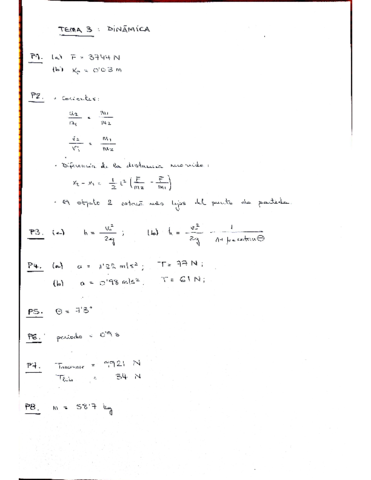 TEMA 3 : DINÁMICA
P1. (a) F = 3744 N
(b) xp = 0'03 m
P2. • Cocientes:
a2/a1 = m1/m2
v2/v1 = m1/m2
• Diferencia de la distancia recorrida:
x2 - x1 = 1/2 t² (F/m2 - F/m1)
• El objeto 2 estará más lejos del punto de partida
P3. (a) h = v0²/2g ; (b) h = v0²/2g 1/1+μcotanΘ
P4. (a) a = m/s² ; T = 77 N ;
(b) a = 0'98 m/s² ; T = 61 N ;
P5. Θ = 7'3°
P6. periodo = 0'9 s
P7. = 921 N
= 34 N
P8. m = 58'7 kg